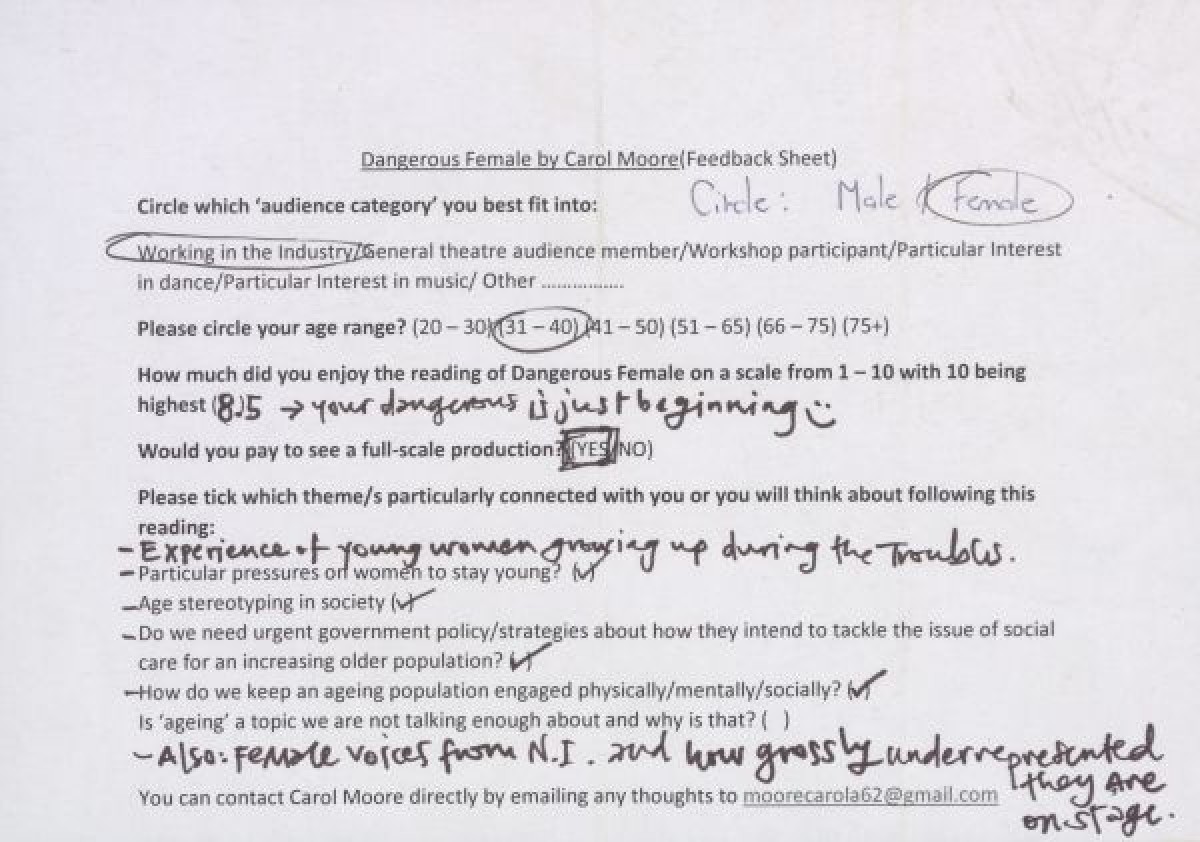 Dangerous Female by Carol Moore(Feedback Sheet)
Circle: Male / Female
Circle which ‘audience category’ you best fit into:
Working in the Industry/General theatre audience member/Workshop participant/Particular Interest
in dance/Particular Interest in music/ Other ................
Please circle your age range? (20 – 30) (31 – 40) (41 – 50) (51 – 65) (66 – 75) (75+)
How much did you enjoy the reading of Dangerous Female on a scale from 1 – 10 with 10 being
highest (8.)5 → your dangerous is just beginning
Would you pay to see a full-scale production? (YES/NO)
Please tick which theme/s particularly connected with you or you will think about following this
reading:
- Experience of young women growing up during the Troubles.
- Particular pressures on women to stay young? (✓)
- Age stereotyping in society (✓)
- Do we need urgent government policy/strategies about how they intend to tackle the issue of social
care for an increasing older population? (✓)
- How do we keep an ageing population engaged physically/mentally/socially? (✓)
Is ‘ageing’ a topic we are not talking enough about and why is that? ( )
- Also: Female voices from N.I. and how grossly underrepresented
they are
on stage.
You can contact Carol Moore directly by emailing any thoughts to moorecarola62@gmail.com